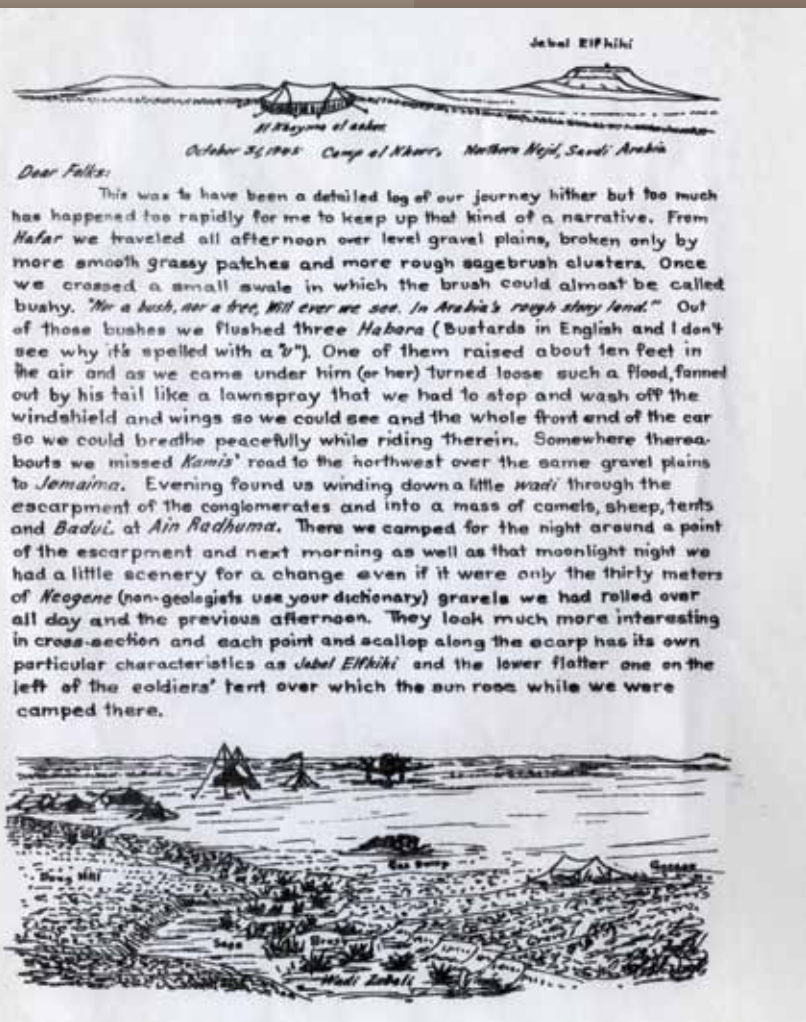 Jebel Elfhihi
Al Khayma el asker
October 31, 1945 Camp el Kharr, Northern Nejd, Saudi Arabia
Dear Folks:
This was to have been a detailed log of our journey hither but too much
has happened too rapidly for me to keep up that kind of a narrative. From
Hafar we traveled all afternoon over level gravel plains, broken only by
more smooth grassy patches and more rough sagebrush clusters. Once
we crossed a small swale in which the brush could almost be called
bushy. "Nor a bush, nor a tree, Will ever we see. In Arabia's rough stony land." Out
of those bushes we flushed three Habara (Bustards in English and I don't
see why it's spelled with a "u"). One of them raised about ten feet in
the air and as we came under him (or her) turned loose such a flood, fanned
out by his tail like a lawnspray that we had to stop and wash off the
windshield and wings so we could see and the whole front end of the car
so we could bredhe peacefully while riding therein. Somewhere therea-
bouts we missed Kamis' road to the northwest over the same gravel plains
to Jemaima. Evening found us winding down a little wadi through the
escarpment of the conglomerates and into a mass of camels, sheep, tents
and Badui at Ain Radhuma. There we camped for the night around a point
of the escarpment and next morning as well as that moonlight night we
had a little scenery for a change even if it were only the thirty meters
of Neogene (non-geologists use your dictionary) gravels we had rolled over
all day and the previous afternoon. They look much more interesting
in cross-section and each point and scallop along the scarp has its own
particular characteristics as Jebel Elfhihi and the lower flatter one on the
left of the soldiers' tent over which the sun rose while we were
camped there.
Gas Dump
Wadi